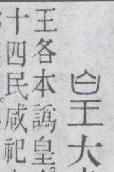 王大
王各本譌皇
十四民咸祀